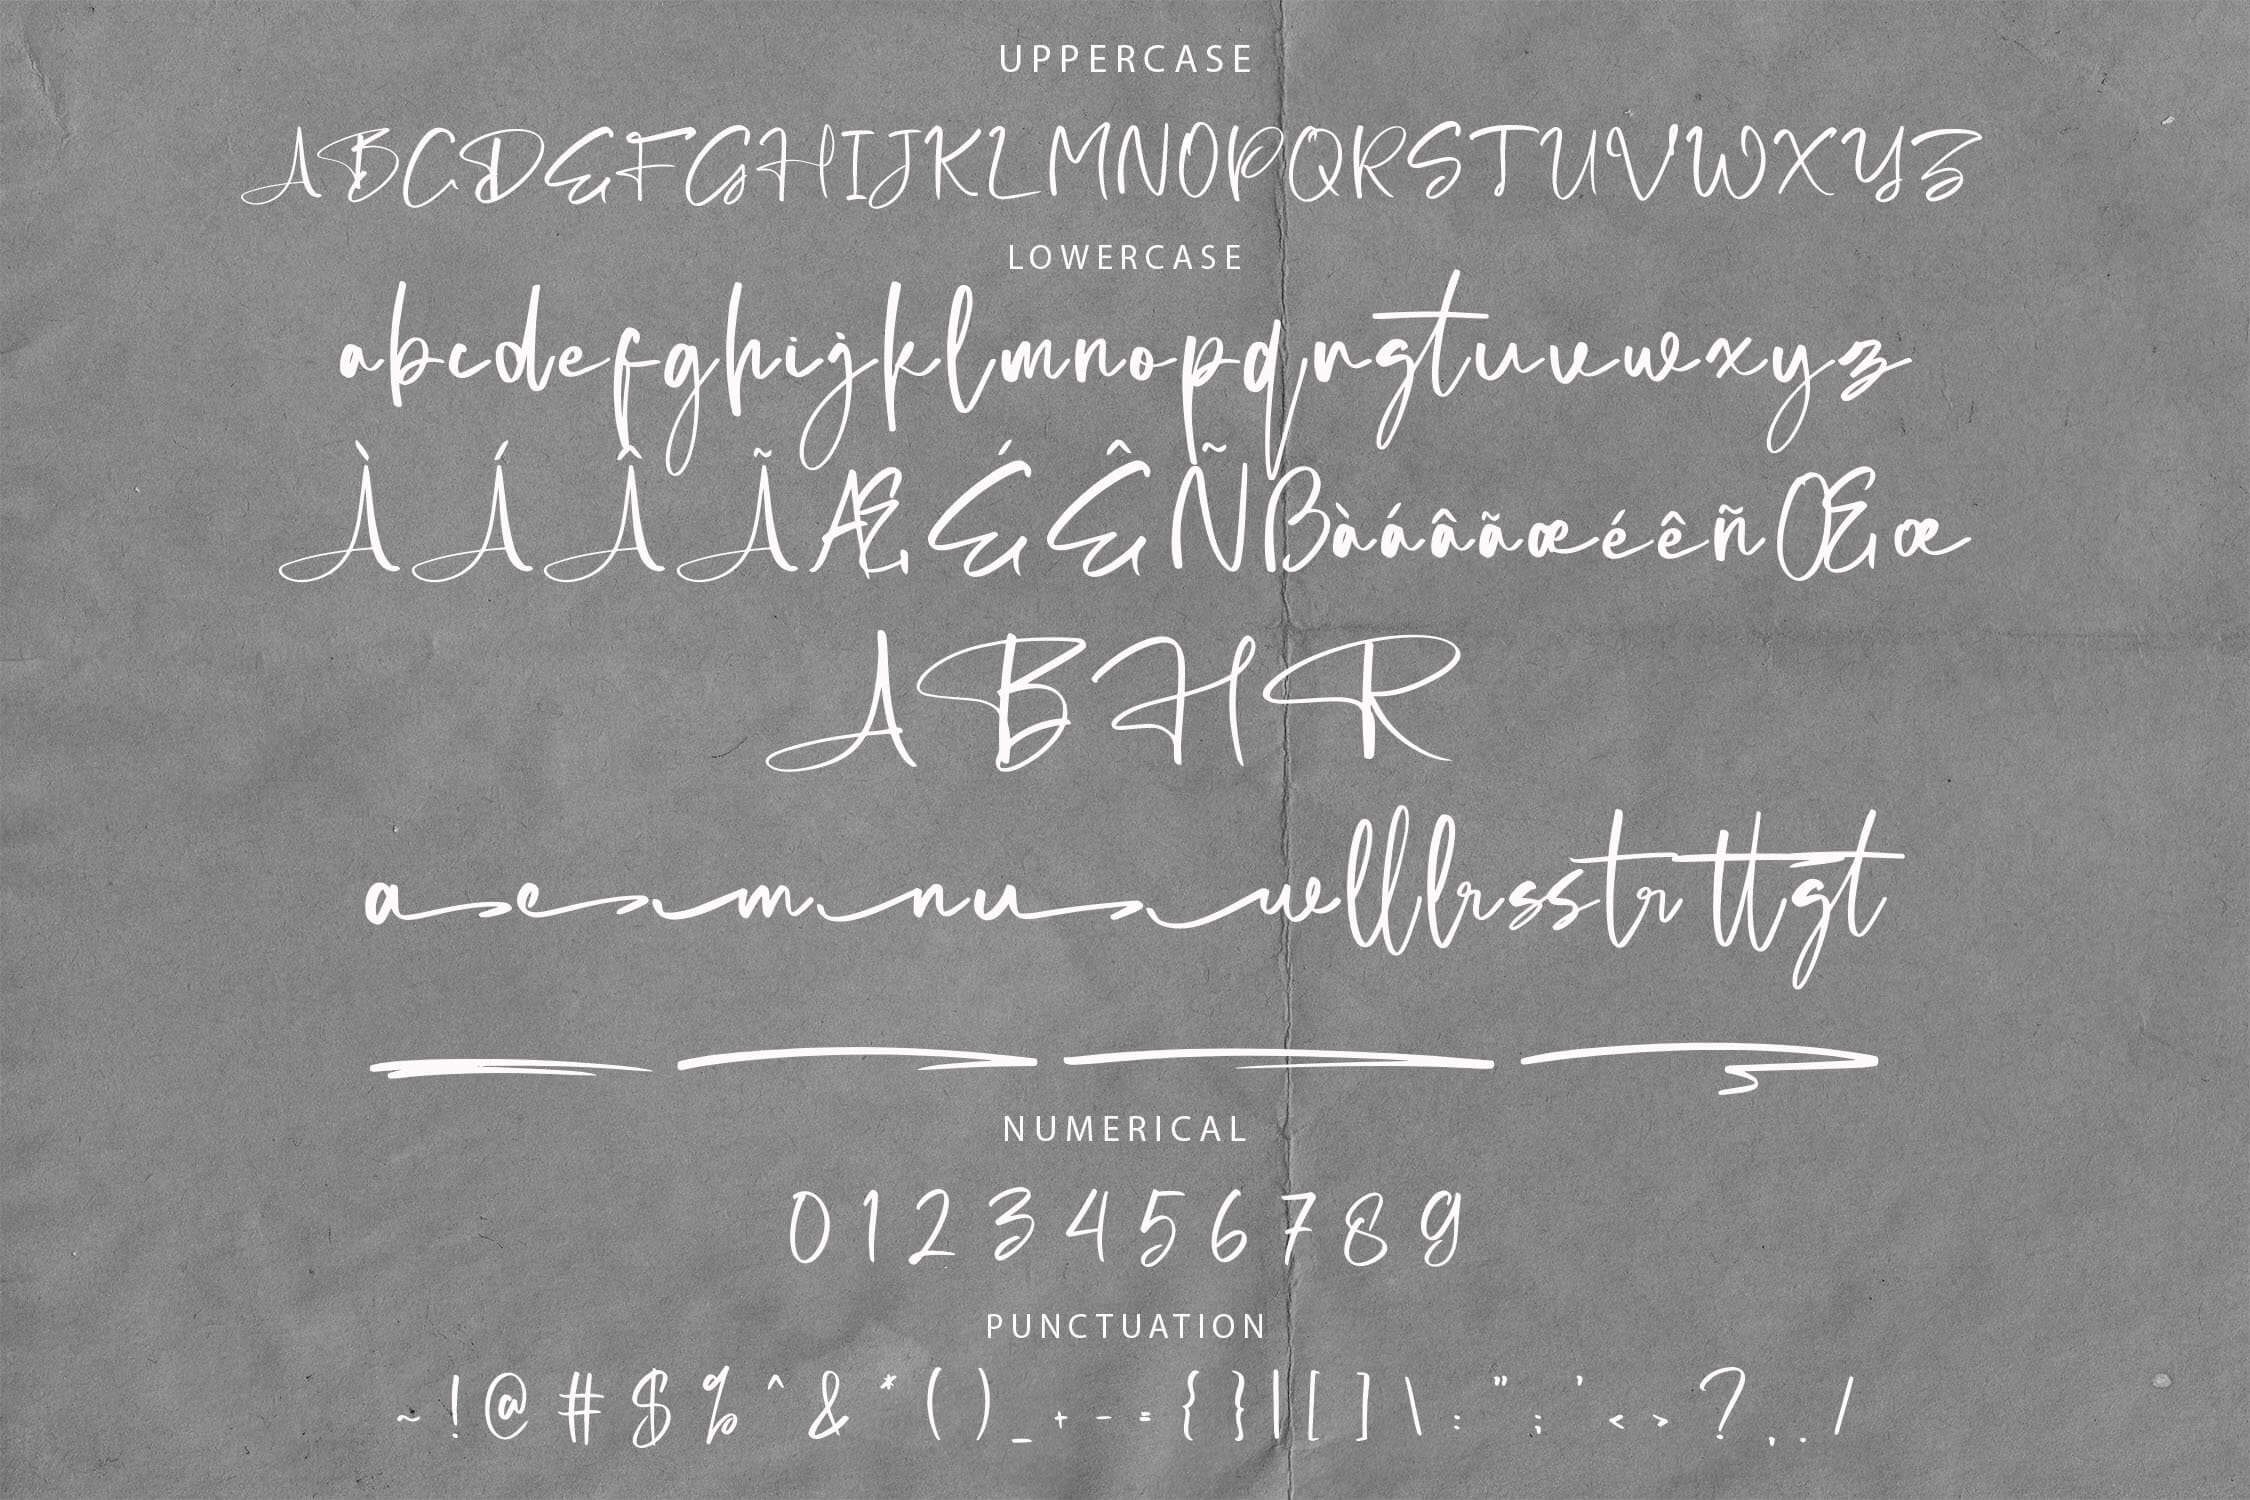 UPPERCASE
ABCDEFGHIJKLMNOPQRSTUVWXYZ
LOWERCASE
abcdefghijklmnopqrstuvwxyz
ÀÁÂÃÆÉÊÑßàáâãæéêñŒœ
ABHR
a e m n u w ll l r ss tr tt gt
NUMERICAL
0 1 2 3 4 5 6 7 8 9
PUNCTUATION
~ ! @ # $ % ^ & * ( ) _ + - = { } | [ ] \ : " ; ' < > ? , . /